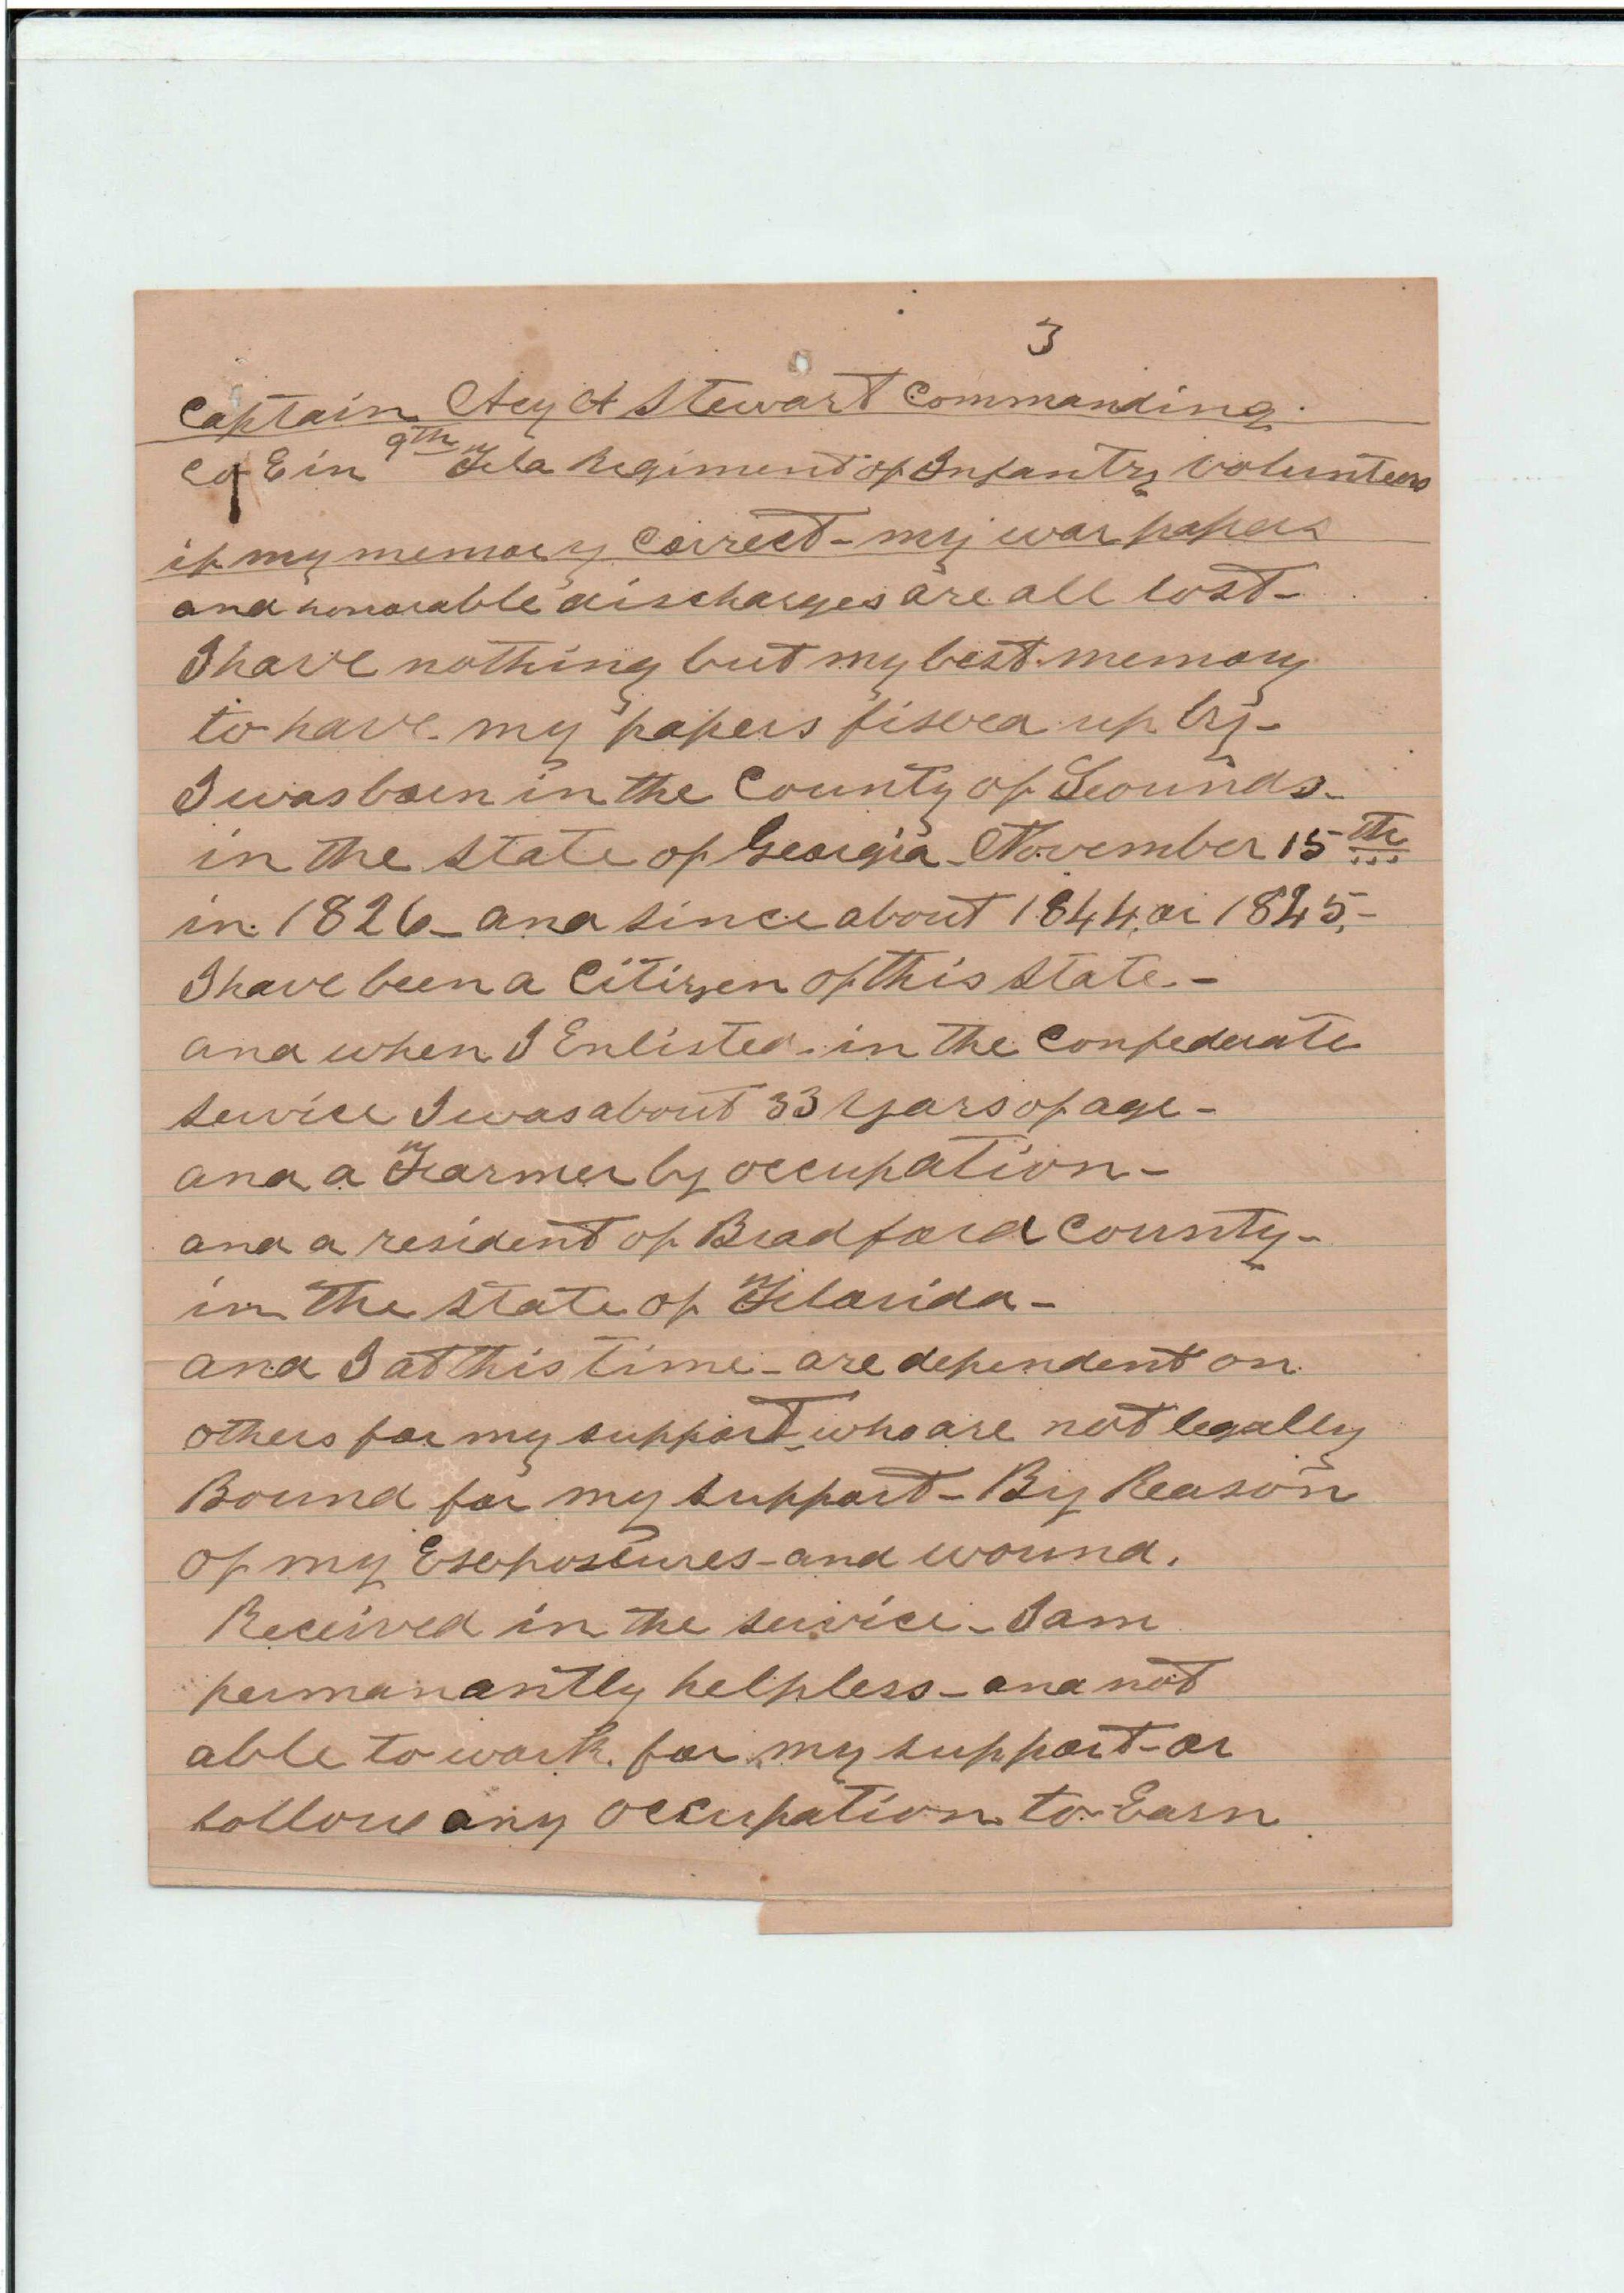 3
Captain Acy A Stewart Commanding
Co E in 9th Fla Regiment of Infantry Volunteers
if my memory Correct - my war papers
and honorable discharges are all lost -
I have nothing but my best memory
to have my papers fixed up by -
I was born in the County of Lounds -
in the state of Georgia - November 15th
in 1826 - and since about 1844, or 1845, -
I have been a Citizen of this state -
and when I Enlisted in the Confederate
service I was about 33 Years of age -
and a Farmer by occupation -
and a resident of Bradford County -
in the state of Florida -
and I at this time - are dependent on
others for my support - who are not legally
Bound for my support - By Reason
of my Exposures - and wound.
Received in the service - I am
permanantly helpless - and not
able to work for my support - or
follow any occupation to Earn